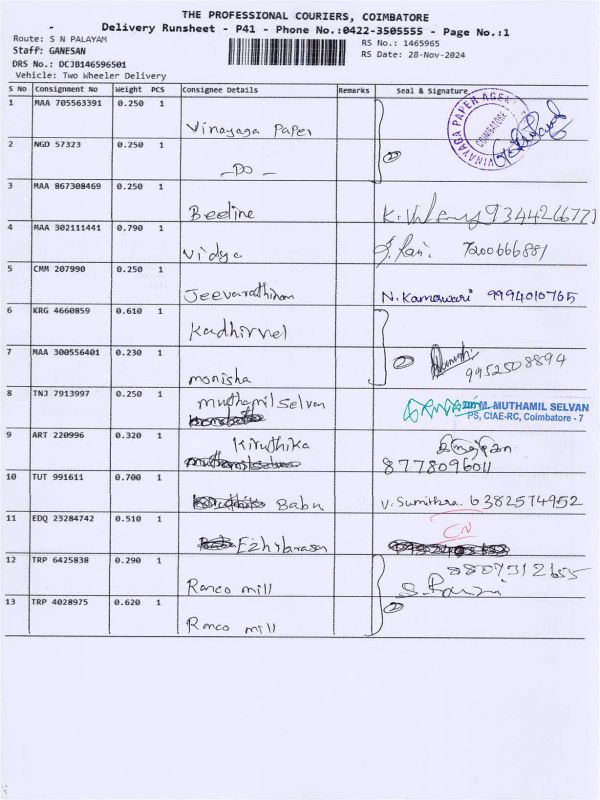 THE PROFESSIONAL COURIERS, COIMBATORE
Delivery Runsheet - P41 - Phone No.:0422-3505555 - Page No.:1
Route: S N PALAYAM
RS No.: 1465965
Staff: GANESAN
RS Date: 28-Nov-2024
DRS No.: DCJB146596501
Vehicle: Two Wheeler Delivery
S No Consignment No Weight PCS Consignee Details Remarks Seal & Signature
1 MAA 705563391 0.250 1 Vinayaga Paper
VINAYAGA PAPER COIMBATORE
2 NGD 57323 0.250 1 -Do-
2
3 MAA 867308469 0.250 1 Beeline 9344266723
4 MAA 302111441 0.790 1 Vidya 7200666881
5 CMM 207990 0.250 1 Jeevarathinam N. Kamawari 9994010765
6 KRG 4660859 0.610 1 Kadhirvel
7 MAA 300556401 0.230 1 monisha 9952508894
8 TNJ 7913997 0.250 1 muthamil selvan
M. MUTHAMIL SELVAN
PS, CIAE-RC, Coimbatore - 7
9 ART 220996 0.320 1 Kiruthika
8778096011
10 TUT 991611 0.700 1 Babu V. Sumithra. 6382574952
11 EDQ 23284742 0.510 1 Ezhilarasan
CN
12 TRP 6425838 0.290 1 Ranco mill 8807312655
13 TRP 4028975 0.620 1 Ranco mill
2